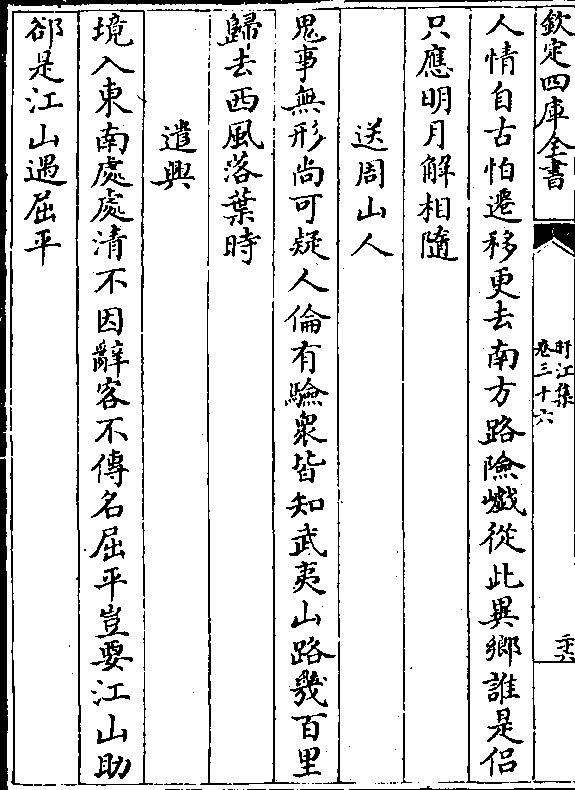 欽定四庫全書
盱江集
卷三十六
人情自古怕遷移更去南方路險巇從此異鄉誰是侶
只應明月解相隨
送周山人
鬼事無形尚可疑人倫有驗衆皆知武夷山路幾百里
歸去西風落葉時
遣興
境入東南處處清不因辭客不傳名屈平豈要江山助
郤是江山遇屈平